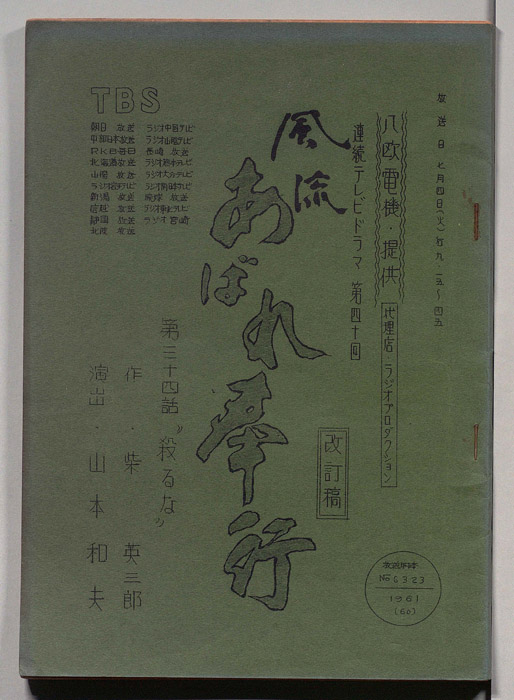 放送日 七月四日(火)后九・一五〜四五
八欧電機・提供
代理店・ラジオプロダクション
連続テレビドラマ 第四十回
風流
あばれ奉行
改訂稿
第三十四話 〝殺るな〟
作・柴 英三郎
演出・山本和夫
TBS
朝日 放送 ラジオ中国テレビ
中部日本放送 ラジオ山陰テレビ
RKB毎日 長崎 放送
北海道放送 ラジオ熊本テレビ
山陽 放送 ラジオ大分テレビ
新潟 放送
静岡 放送 ラジオ宮崎
北陸 放送
放送脚本
No 6323
1961
(60)